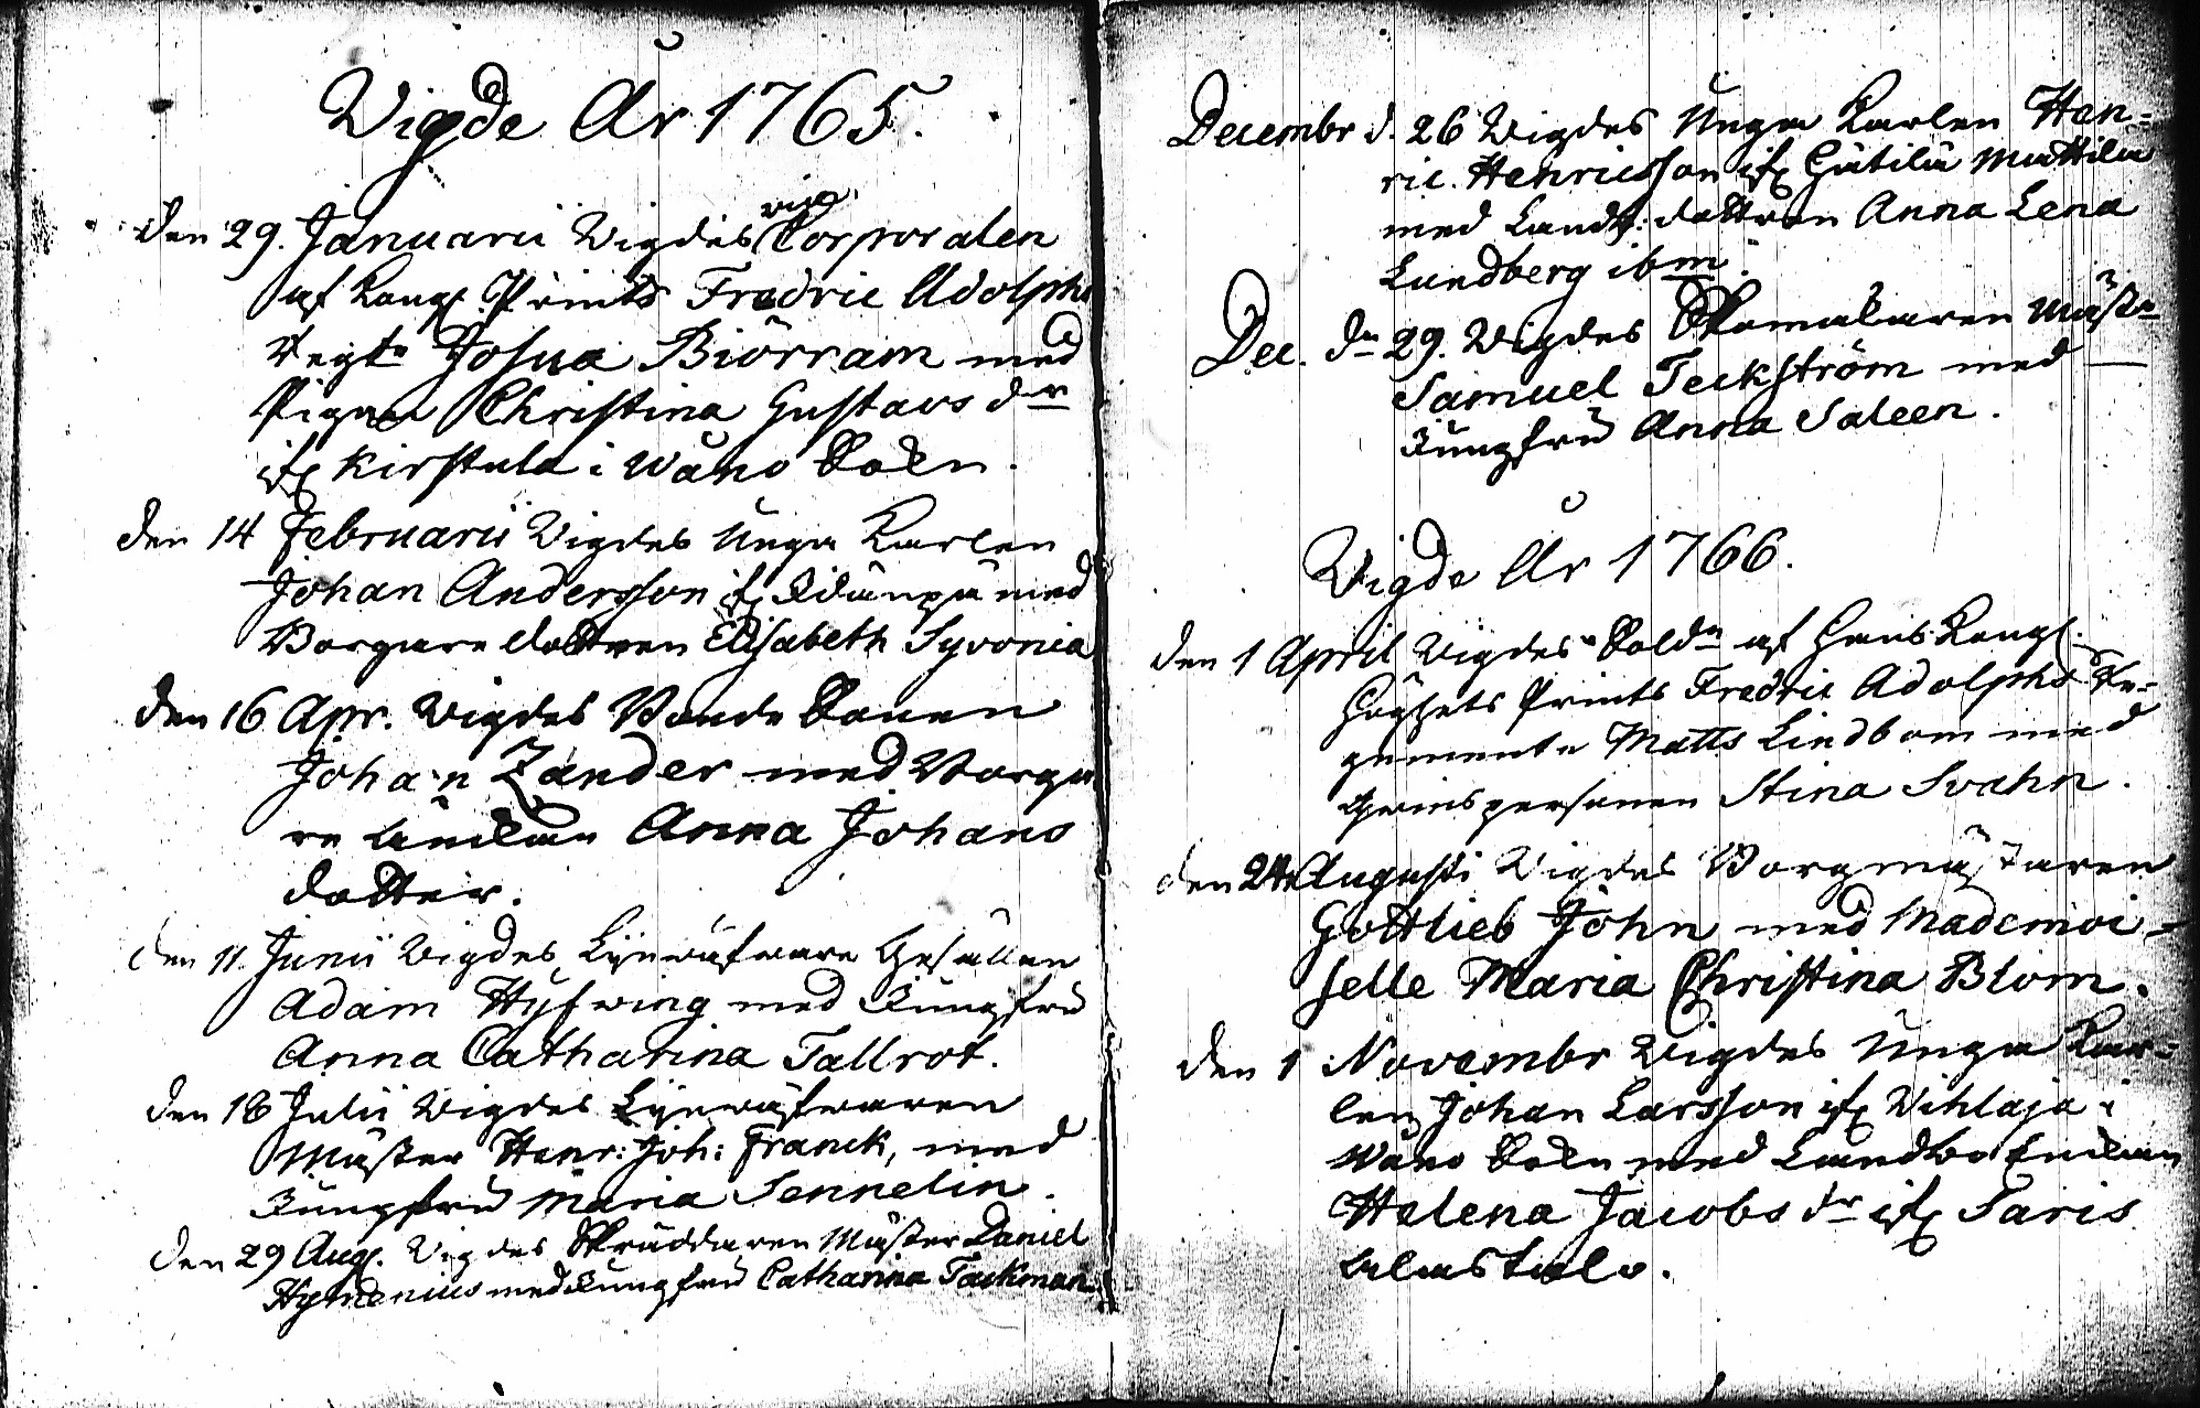 Vigde År 1765.
den 29. Januarii Vigdes vice Corporalen
af Kongl. Prints Fredric Adolphs
Regte Josua Biörram med
Pigan Christina Gustavs dr
ifr Kirstula i Wånå Sokn.
den 14 Februarii Vigdes Unga Karlen
Johan Andersson ifr Idänpä med
Borgare dottren Elisabeth Syvonia
den 16 Apr. Vigdes Bonde Sonen
Johan Zander med Borga
re Änckan Anna Johans
dotter.
den 11. Junii Vigdes Linwäfvare Gesällen
Adam Hyfwing med Jungfru
Anna Catharina Tallrot.
den 18 Julii Vigdes Linwäfvaren
Mäster Henr: Joh: Franck, med
Jungfru Maria Sennelin.
den 29 Aug. Vigdes Skräddaren Mäster Daniel
Hymenius med Jungfru Catharina Tackman.
Decembr d. 26 Vigdes Unga Karlen Hen-
ric Henricsson ifr Hätilä Mattila
med Landb: dottren Anna Lena
Lundberg ibm.
Dec. dn 29. Vigdes Skomakaren Mästn
Samuel Teckström med
Jungfru Anna Saleen.
Vigde År 1766.
den 1 April Vigdes Soldn af Hans Kongl.
Höghets Prints Fredric Adolphs Re-
gemente Matts Lindbom med
Qwinspersonen Stina Svahn.
den 24 Augusti Vigdes Borgmästaren
Gottlieb John med Mademoi-
selle Maria Christina Blom.
den 1 Novembr Vigdes Unga Kar-
len Johan Larsson ifr Wihlaja i
Wånå Sokn med Landbo Enckan
Helena Jacobs dr ifr Saris